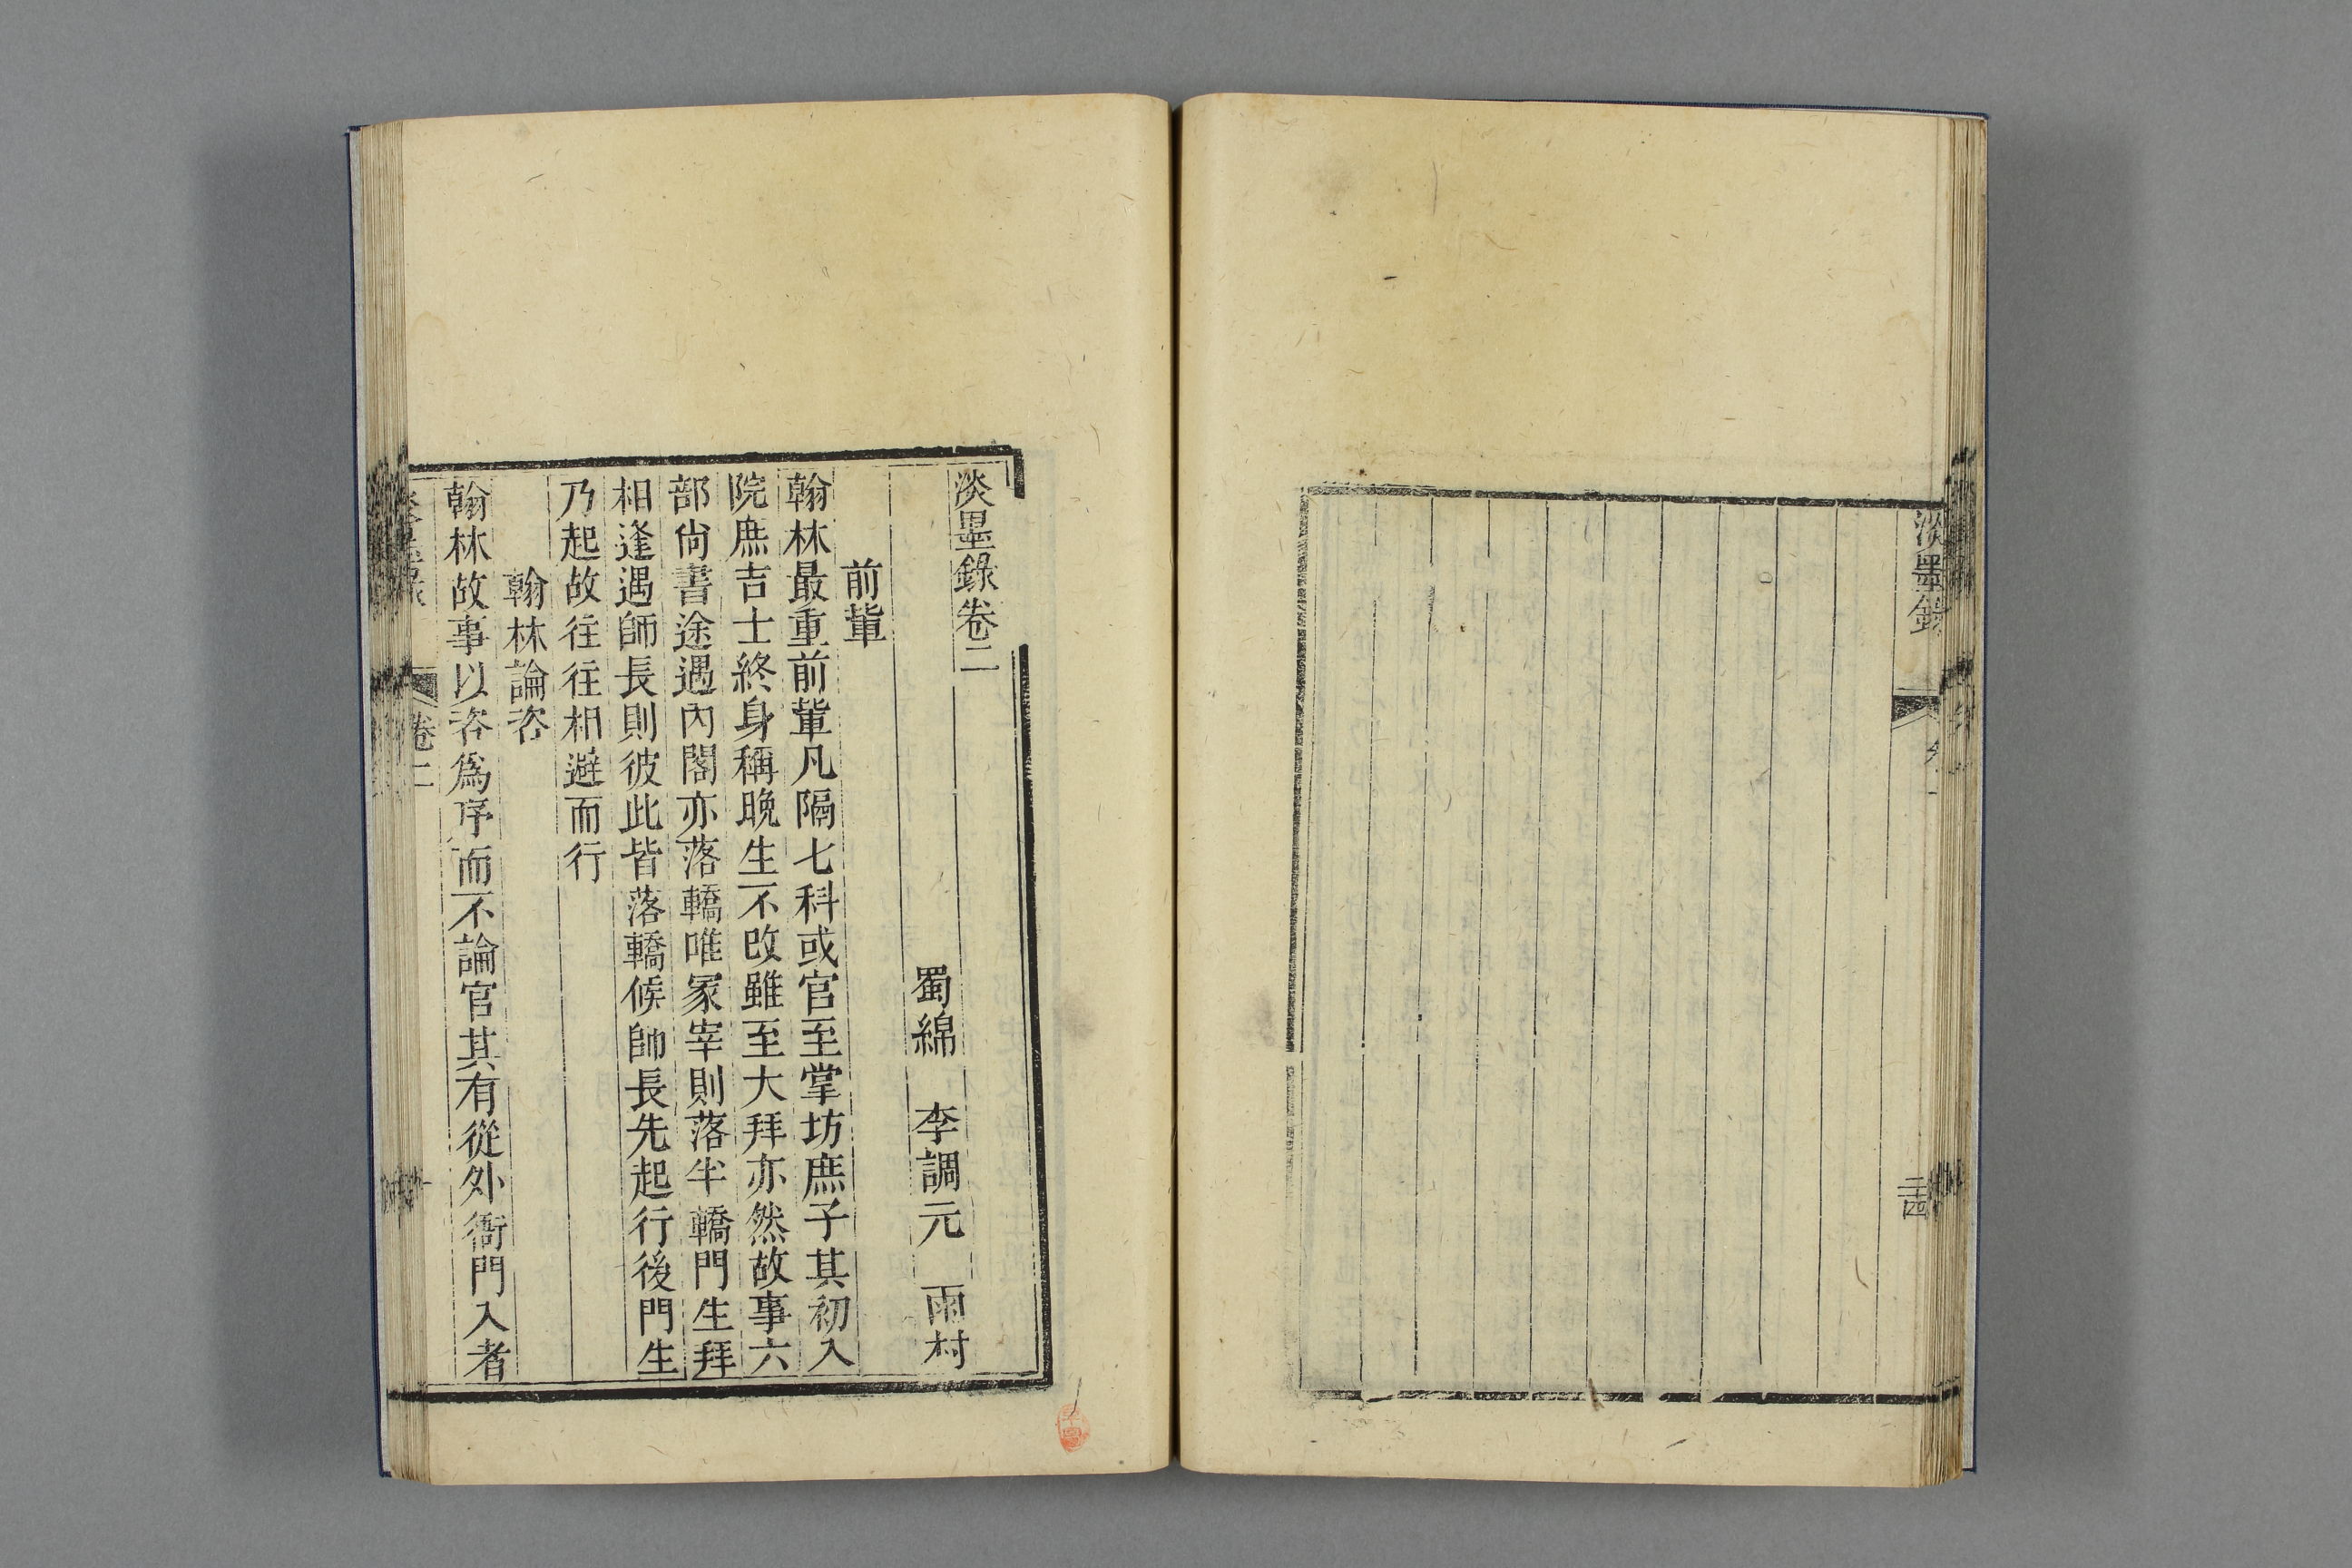 淡墨錄
二十四
淡墨錄卷二
蜀綿　李調元　雨村
前輩
翰林最重前輩凡隔七科或官至掌坊庶子其初入
院庶吉士終身稱晚生不改雖至大拜亦然故事六
部尙書途遇內閣亦落轎唯冢宰則落半轎門生拜
相逢遇師長則彼此皆落轎候師長先起行後門生
乃起故往往相避而行
翰林論咨
翰林故事以咨爲序而不論官其有從外衙門入者
卷二